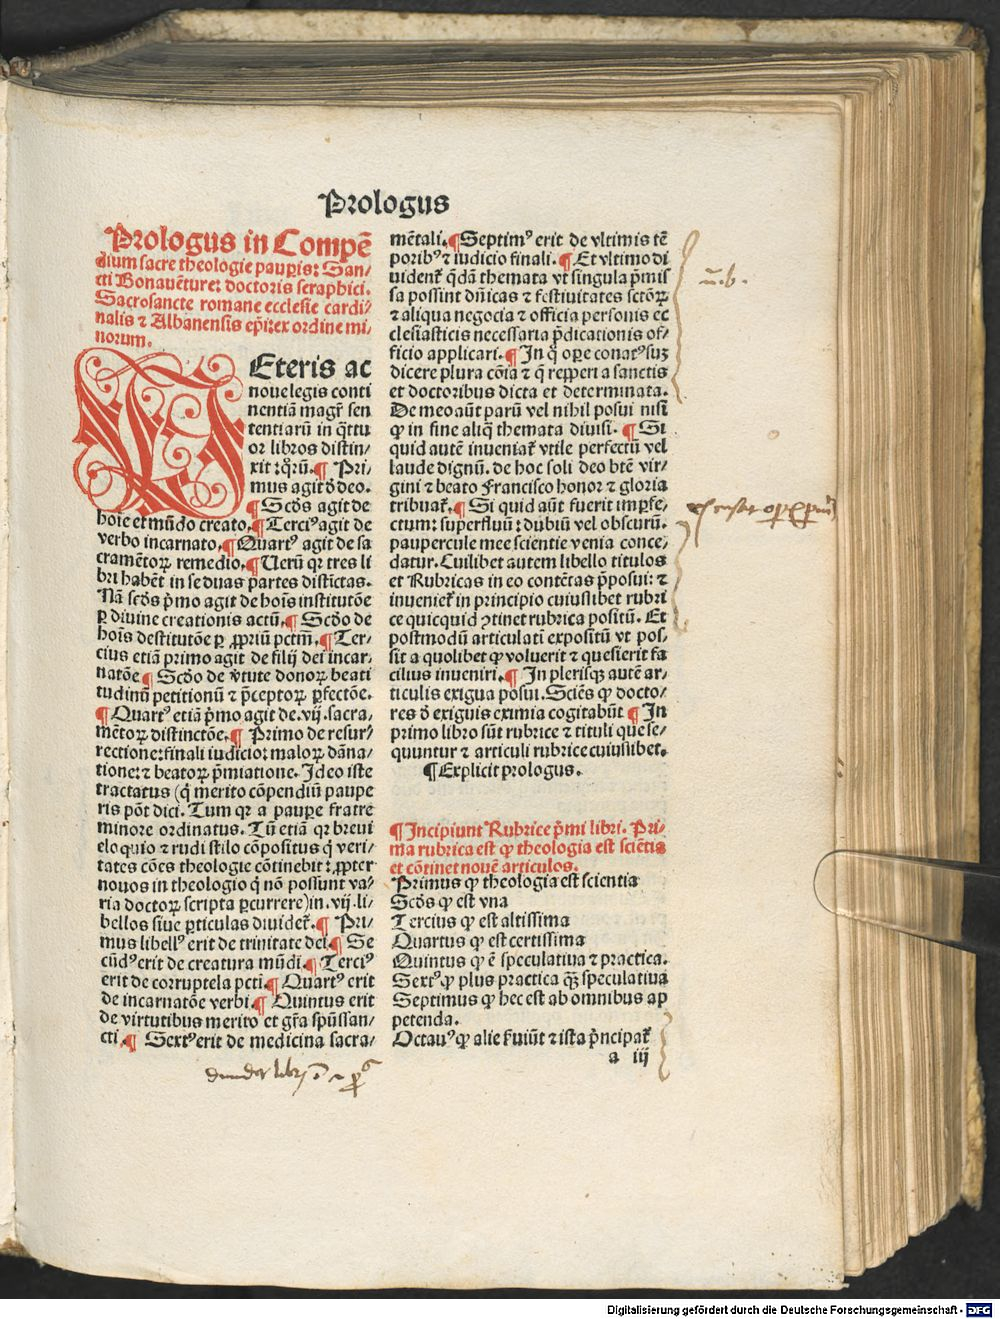 Prologus
Prologus in Compē
dium sacre theologie paupis: San/
cti Bonauēture: doctoris seraphici.
Sacrosancte romane ecclesie cardi/
nalis ⁊ Albanensis ep̄i: ex ordine mi/
norum.
VEteris ac
noue legis conti
nentiā magr̄ sen
tentiarū in q̄ttu
or libros distin/
xit: qꝛū. ¶ Pri/
mus agit ð deo.
¶ Scðs agit de
hoīe et mūdo creato. ¶ Terciꝰ agit de
verbo incarnato. ¶ Quartꝰ agit de sa
cramētoꝝ remedio. ¶ Uerū qꝛ tres li
bri habēt in se duas partes distīctas.
Nā scðs p̄mo agit de hoīs institutōe
ꝑ diuine creationis actū. ¶ Scðo de
hoīs destitutōe ꝑ ꝓpriū pctm̄. ¶ Ter/
cius etiā primo agit de filij dei incar/
natōe ¶ Scðo de v̄tute donoꝝ beati
tudinū petitionū ⁊ p̄ceptoꝝ ꝑfectōe.
¶ Quartꝰ etiā p̄mo agit de .vij. sacra/
mētoꝝ distinctōe. ¶ Primo de resur/
rectione: finali iudicio: maloꝝ dāna/
tione: ⁊ beatoꝝ p̄miatione. Ideo iste
tractatus (q̄ merito cōpendiū paupe
ris pōt dici. Tum qꝛ a paupe fratre
minore ordinatus. Tū etiā qꝛ breui
eloquio ⁊ rudi stilo cōpositus q̄ veri/
tates cōes theologie cōtinebit: ꝓpter
nouos in theologio q̄ nō possunt va/
ria doctoꝝ scripta ꝑcurrere) in .vij. li/
bellos siue ꝑticulas diuidet̄. ¶ Pri/
mus libellꝰ erit de trinitate dei. ¶ Se
cūdꝰ erit de creatura mūdi. ¶ Terciꝰ
erit de corruptela pcti. ¶ Quartꝰ erit
de incarnatōe verbi. ¶ Quintus erit
de virtutibus merito et gr̄a spūssan/
cti. ¶ Sextꝰ erit de medicina sacra/
mētali. ¶ Septimꝰ erit de vltimis tē
poribꝰ ⁊ iudicio finali. ¶ Et vltimo di
uident̄ q̄dā themata vt singula p̄mis
sa possint dn̄icas ⁊ festiuitates sctōꝝ
⁊ aliqua negocia ⁊ officia personis ec
clesiasticis necessaria p̄dicationis of/
ficio applicari. ¶ In q̄ oꝑe conatꝰ suꝫ
dicere plura cōia ⁊ q̄ repperi a sanctis
et doctoribus dicta et determinata.
De meo aūt parū vel nihil posui nisi
ꝙ in fine aliq̄ themata diuisi. ¶ Si
quid autē inueniat̄ vtile perfectū vel
laude dignū. de hoc soli deo btē vir/
gini ⁊ beato Francisco honor ⁊ gloria
tribuat̄. ¶ Si quid aūt fuerit imꝑfe/
ctum: superfluū: dubiū vel obscurū.
paupercule mee scientie venia conce/
datur. Cuilibet autem libello titulos
et Rubricas in eo contētas p̄posui: ⁊
inueniet̄ in principio cuiuslibet rubri
ce quicquid ꝯtinet rubrica positū. Et
postmodū articulati expositū vt pos/
sit a quolibet ꝙ voluerit ⁊ quesierit fa
cilius inueniri. ¶ In plerisqꝫ autē ar/
ticulis exigua posui. Sciēs ꝙ docto/
res ð exiguis eximia cogitabūt ¶ In
primo libro sūt rubrice ⁊ tituli que se/
quuntur ⁊ articuli rubrice cuiuslibet.
¶ Explicit prologus.
¶ Incipiunt Rubrice p̄mi libri. Pri/
ma rubrica est ꝙ theologia est sciētia
et cōtinet nouē articulos.
Primus ꝙ theologia est scientia
Scðs ꝙ est vna
Tercius ꝙ est altissima
Quartus ꝙ est certissima
Quintus ꝙ ē speculatiua ⁊ practica.
Sextꝰ ꝙ plus practica qꝫ speculatiua
Septimus ꝙ hec est ab omnibus ap
petenda.
Octauꝰ ꝙ alie s̄uiūt ⁊ ista p̄ncipat̄
a iij
n̄.b.
Digitalisierung gefördert durch die Deutsche Forschungsgemeinschaft - DFG